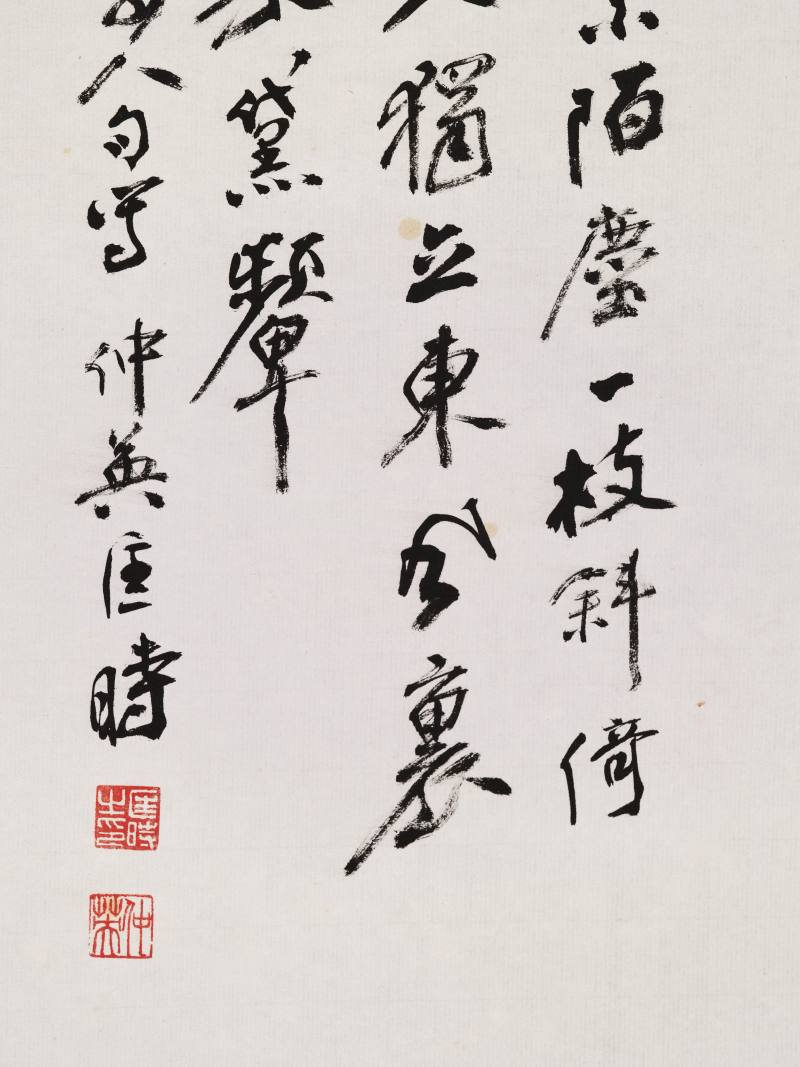 陌塵一枝斜倚
獨立東風裏
黛顰
人句寫 仲英匡時
匡時之印
仲英